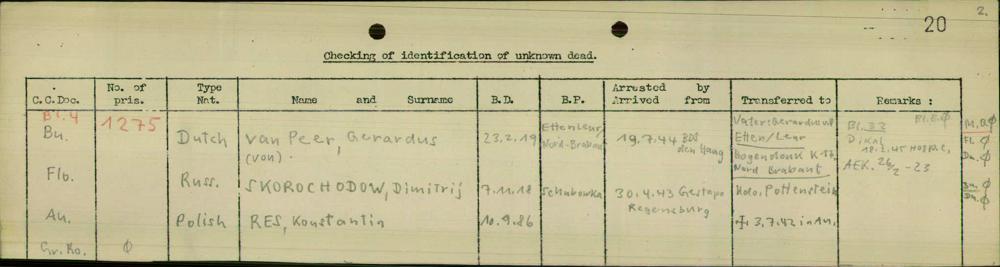 2.
20
Checking of identification of unknown dead.
C.C.Doc. No. of pris. Type Nat. Name and Surname B.D. B.P. Arrested by Arrived from Transferred to Remarks :
Bl. 4
Bu. 1275 Dutch van Peer, Gerardus 23.2.19 Etten Leur, 19.7.44 BdS Vater: Gerardus v. P. Bl. 33 Bl.B.Ø M.B.Ø
(von). Nord-Brabant den Haag Etten/Leur DIKAL Fl. Ø
Hogendonk K 17, 18.2.45 Hospic, Da. Ø
Flb. Nord Brabant AEK. 26/2 -23
Russ. SKOROCHODOW, Dimitrij 7.11.18 Schubowka 30.4.43 Gestapo Kdo. Pottenstein Bu. Ø
Regensburg Da. Ø
Au. Polish RES, Konstantin 10.9.86 3.7.42 in Au.
Gr. Ro. Ø